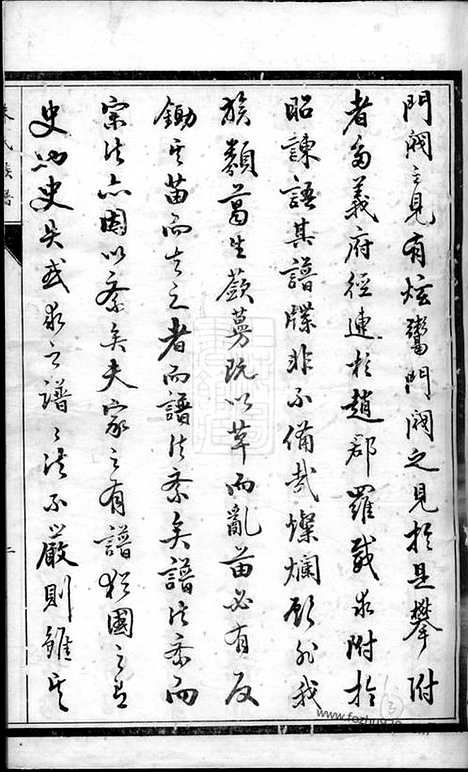 門閥之見有炫鬻門閥之見於是攀附
者多義府徑連於趙郡羅威求附於
昭諫語其譜牒非不備哉燦爛顧非我
族類葛生蘞蔓既以草而亂苗必有反
鋤其苗而去之者而譜法紊矣譜法紊而
宗法亦因以紊矣夫家之有譜猶國之有
史也史失或求之譜譜法不嚴則雖其
氏族譜
www.fezhug.io